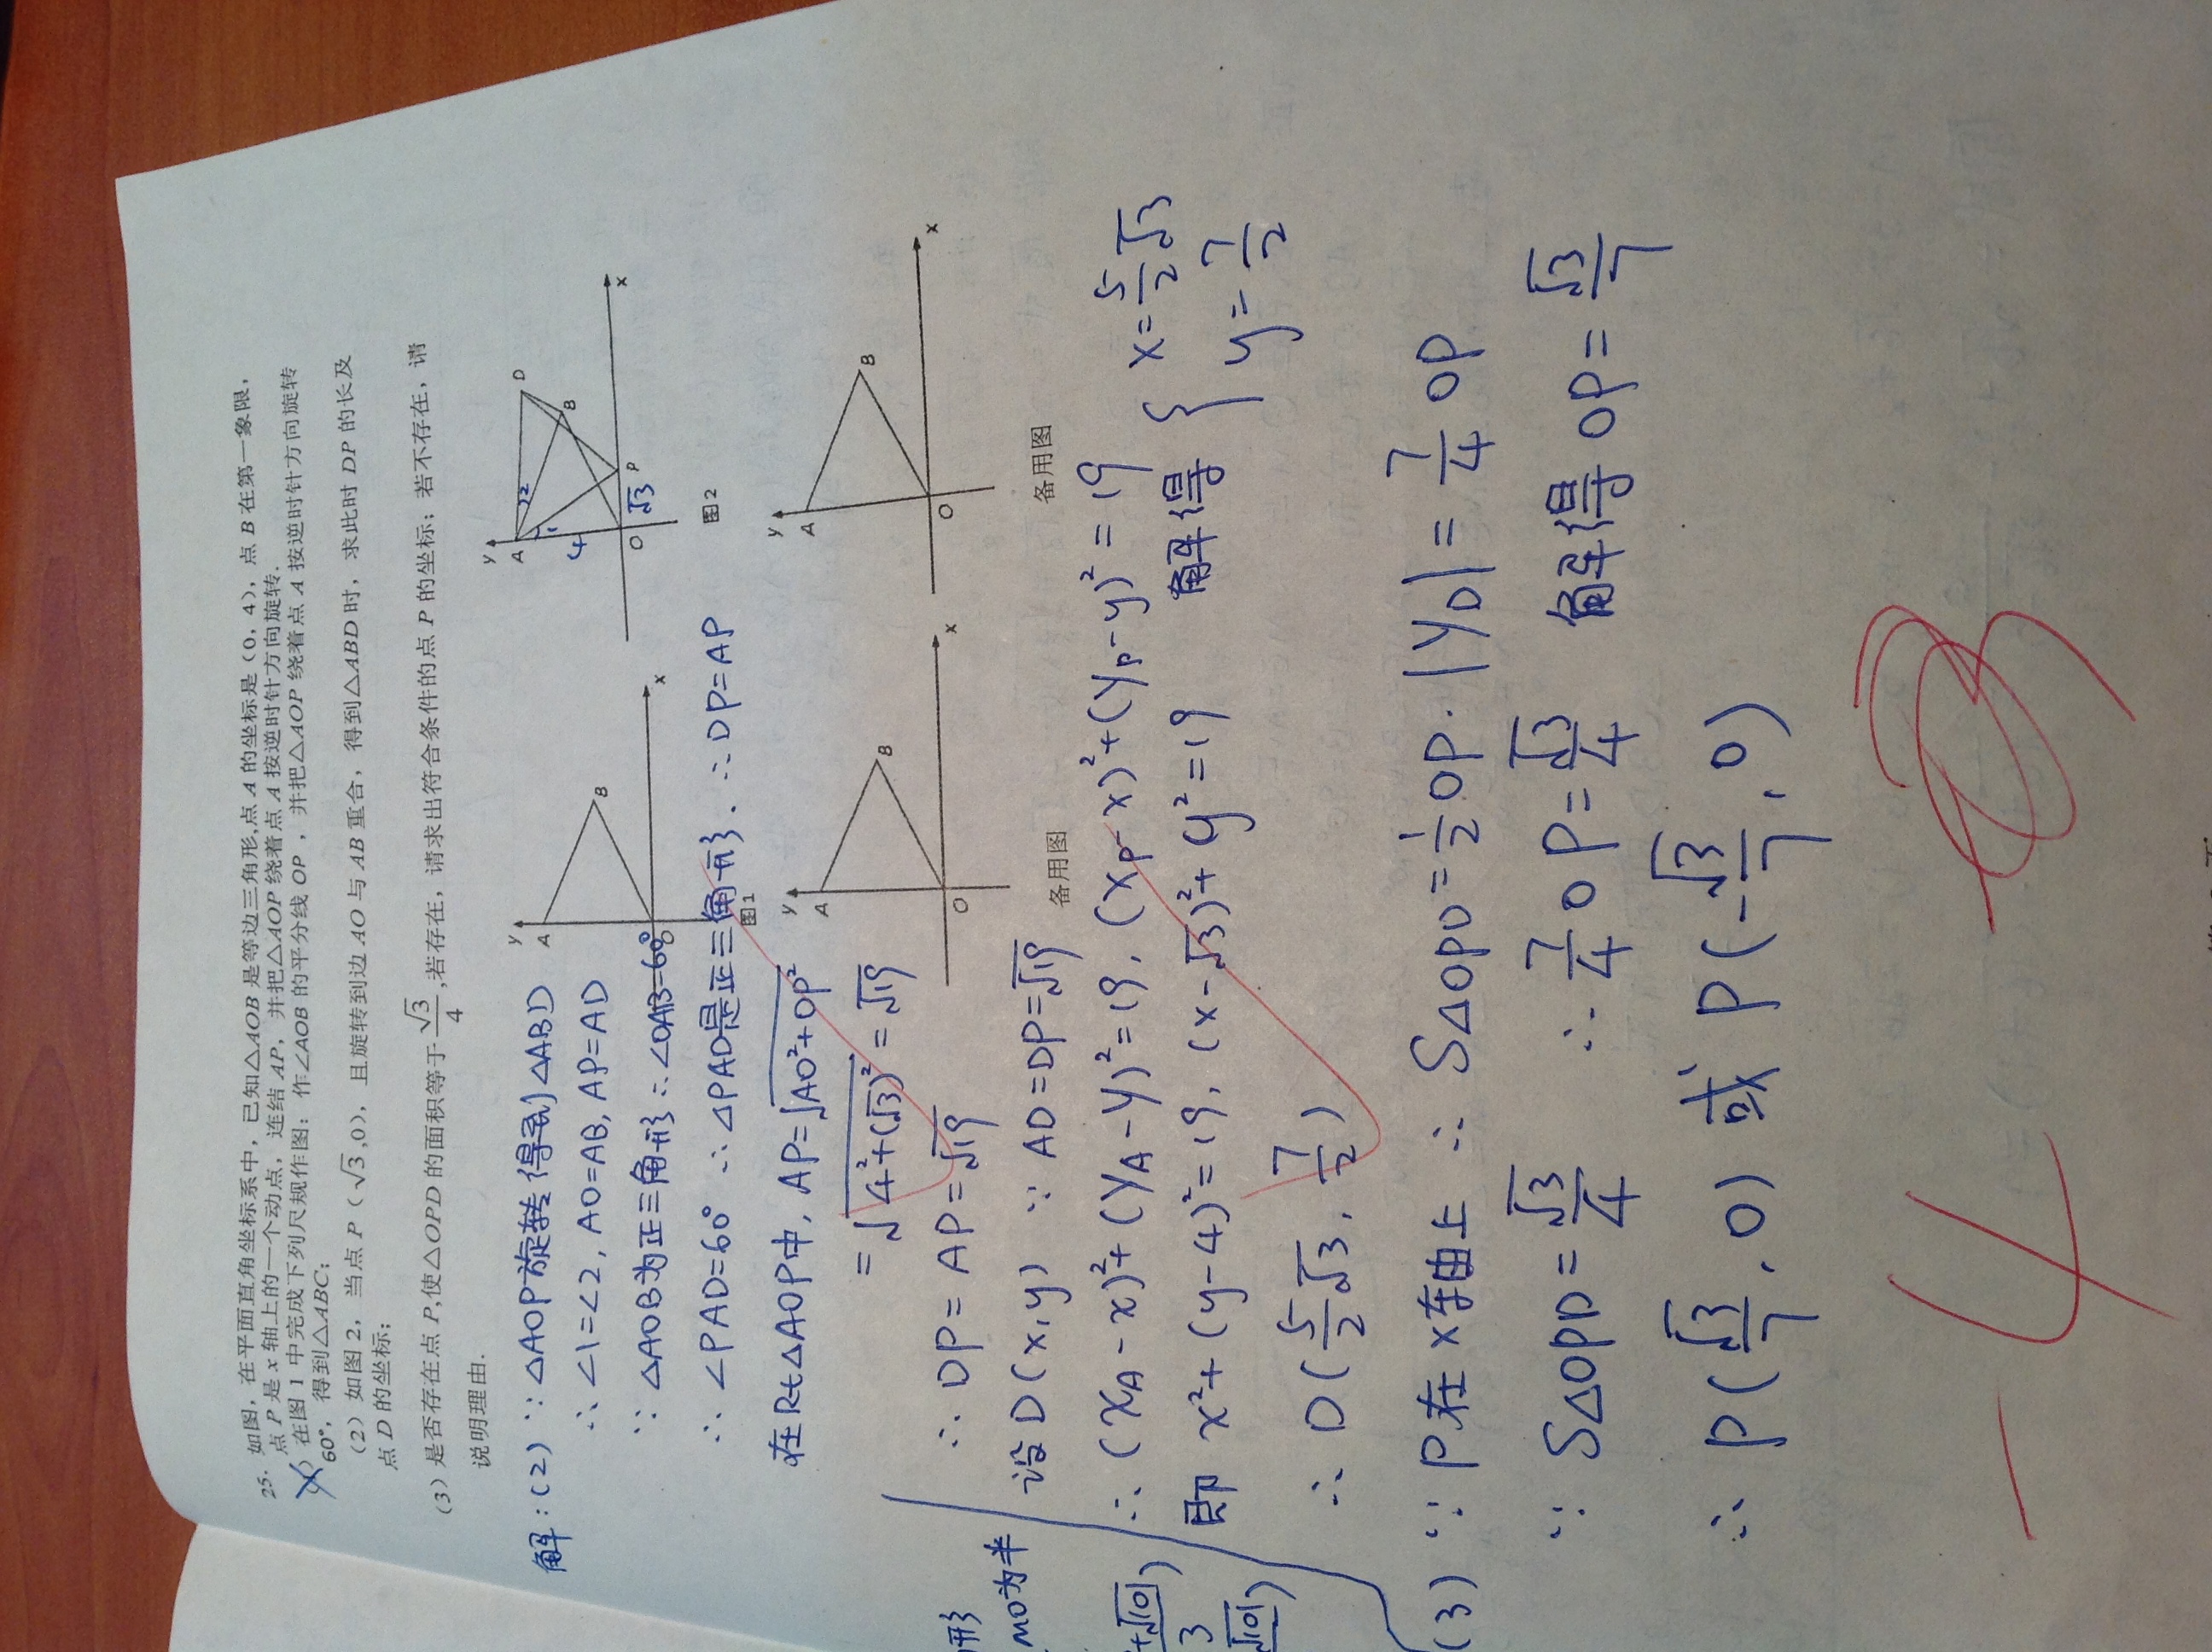 25. 如图，在平面直角坐标系中，已知△AOB 是等边三角形,点 A 的坐标是（0，4），点 B 在第一象限，
点 P 是 x 轴上的一个动点，连结 AP，并把△AOP 绕着点 A 按逆时针方向旋转.
在图 1 中完成下列尺规作图：作∠AOB 的平分线 OP ，并把△AOP 绕着点 A 按逆时针方向旋转
60°，得到△ABC；
（2）如图 2，当点 P（√3,0），且旋转到边 AO 与 AB 重合，得到△ABD 时，求此时 DP 的长及
点 D 的坐标；
（3）是否存在点 P,使△OPD 的面积等于 √3/4 ,若存在，请求出符合条件的点 P 的坐标；若不存在，请
说明理由.
y
A
B
x
O
图1
y
A
2
D
1
4
B
O
√3
P
x
图2
y
A
B
O
x
备用图
y
A
B
O
x
备用图
解：(2) ∵ △AOP旋转得到△ABD
∴ ∠1=∠2, AO=AB, AP=AD
∵ △AOB为正三角形 ∴ ∠OAB=60°
∴ ∠PAD=60° ∴ △PAD是正三角形. ∴ DP=AP
在Rt△AOP中, AP=√(AO²+OP²)
=√(4²+(√3)²) = √19
∴ DP = AP = √19
设 D(x,y) ∵ AD=DP=√19
∴ (x_A-x)²+(y_A-y)²=19, (x_P-x)²+(y_P-y)²=19
即 x²+(y-4)²=19, (x-√3)²+y²=19 解得 { x=5/2√3
y=7/2
∴ D(5/2√3, 7/2)
(3) ∵ P在x轴上 ∴ S△OPD=1/2 OP·|y_D|=7/4 OP
∵ S△OPD=√3/4 ∴ 7/4 OP=√3/4 解得 OP=√3/7
∴ P(√3/7, 0) 或 P(-√3/7, 0)
形
MO为半
+√101)
3
√101)
-4